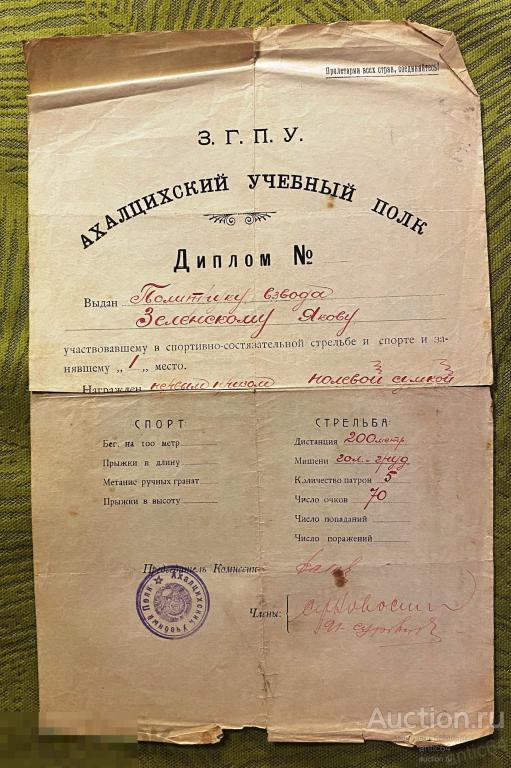 Пролетарии всех стран, соединяйтесь!
З. Г. П. У.
АХАЛЦИХСКИЙ УЧЕБНЫЙ ПОЛК
Диплом №
Выдан Политруку взвода
Зеленскому Якову
участвовавшему в спортивно-состязательной стрельбе и спорте и за-
нявшему „ 1 „ место.
Награжден первым призом полевой сумкой
СПОРТ
Бег. на 100 метр.
Прыжки в длину
Метание ручных гранат
Прыжки в высоту
СТРЕЛЬБА
Дистанция 200 метр
Мишени гол.-груд
Количество патрон 5
Число очков 70
Число попаданий
Число поражений
Председатель Комиссии
Члены:
Ахалцихский Учебный Полк
Auction.ru
antic64
auction.ru